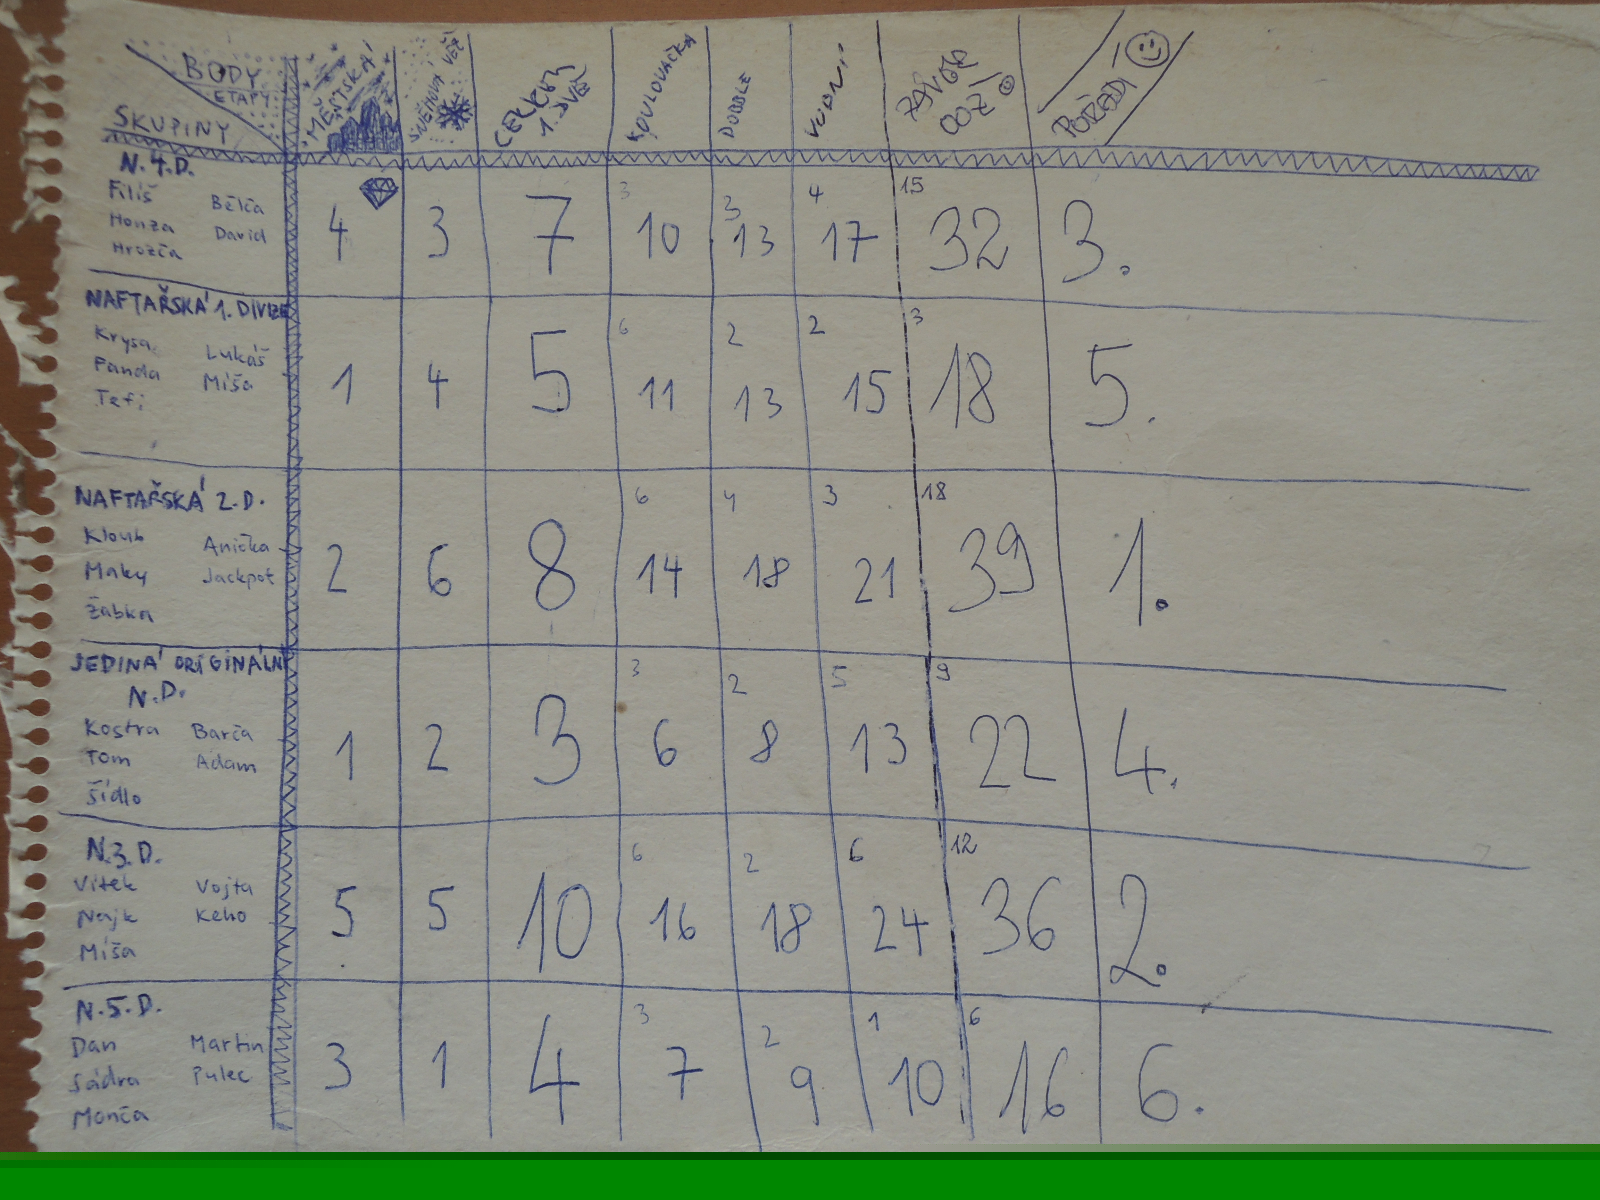 BODY
ETAPY
SKUPINY
MĚSTSKÁ
SNĚHOVÁ VĚŽ
CELKEM
KOULOVAČKA
DOBBLE
VODNÍ
ZÁVĚR
POŘADÍ
N.4.D.
Filiš Bělča
Honza David
Hrozča
4 3 7 3 10 3 13 4 17 15 32 3.
NAFTAŘSKÁ 1. DIVIZE
Krysa Lukáš
Fanda Míša
Tefi
1 4 5 6 11 2 13 2 15 3 18 5.
NAFTAŘSKÁ 2.D.
Kloub Anička
Maky Jackpot
Žabka
2 6 8 6 14 4 18 3 21 18 39 1.
JEDINÁ ORIGINÁLNÍ
N.D.
Kostra Barča
Tom Adam
Šídlo
1 2 3 3 6 2 8 5 13 9 22 4.
N.3.D.
Vítek Vojta
Najk Keho
Míša
5 5 10 6 16 2 18 6 24 12 36 2.
N.5.D.
Dan Martin
Sádra Pulec
Monča
3 1 4 3 7 2 9 1 10 6 16 6.